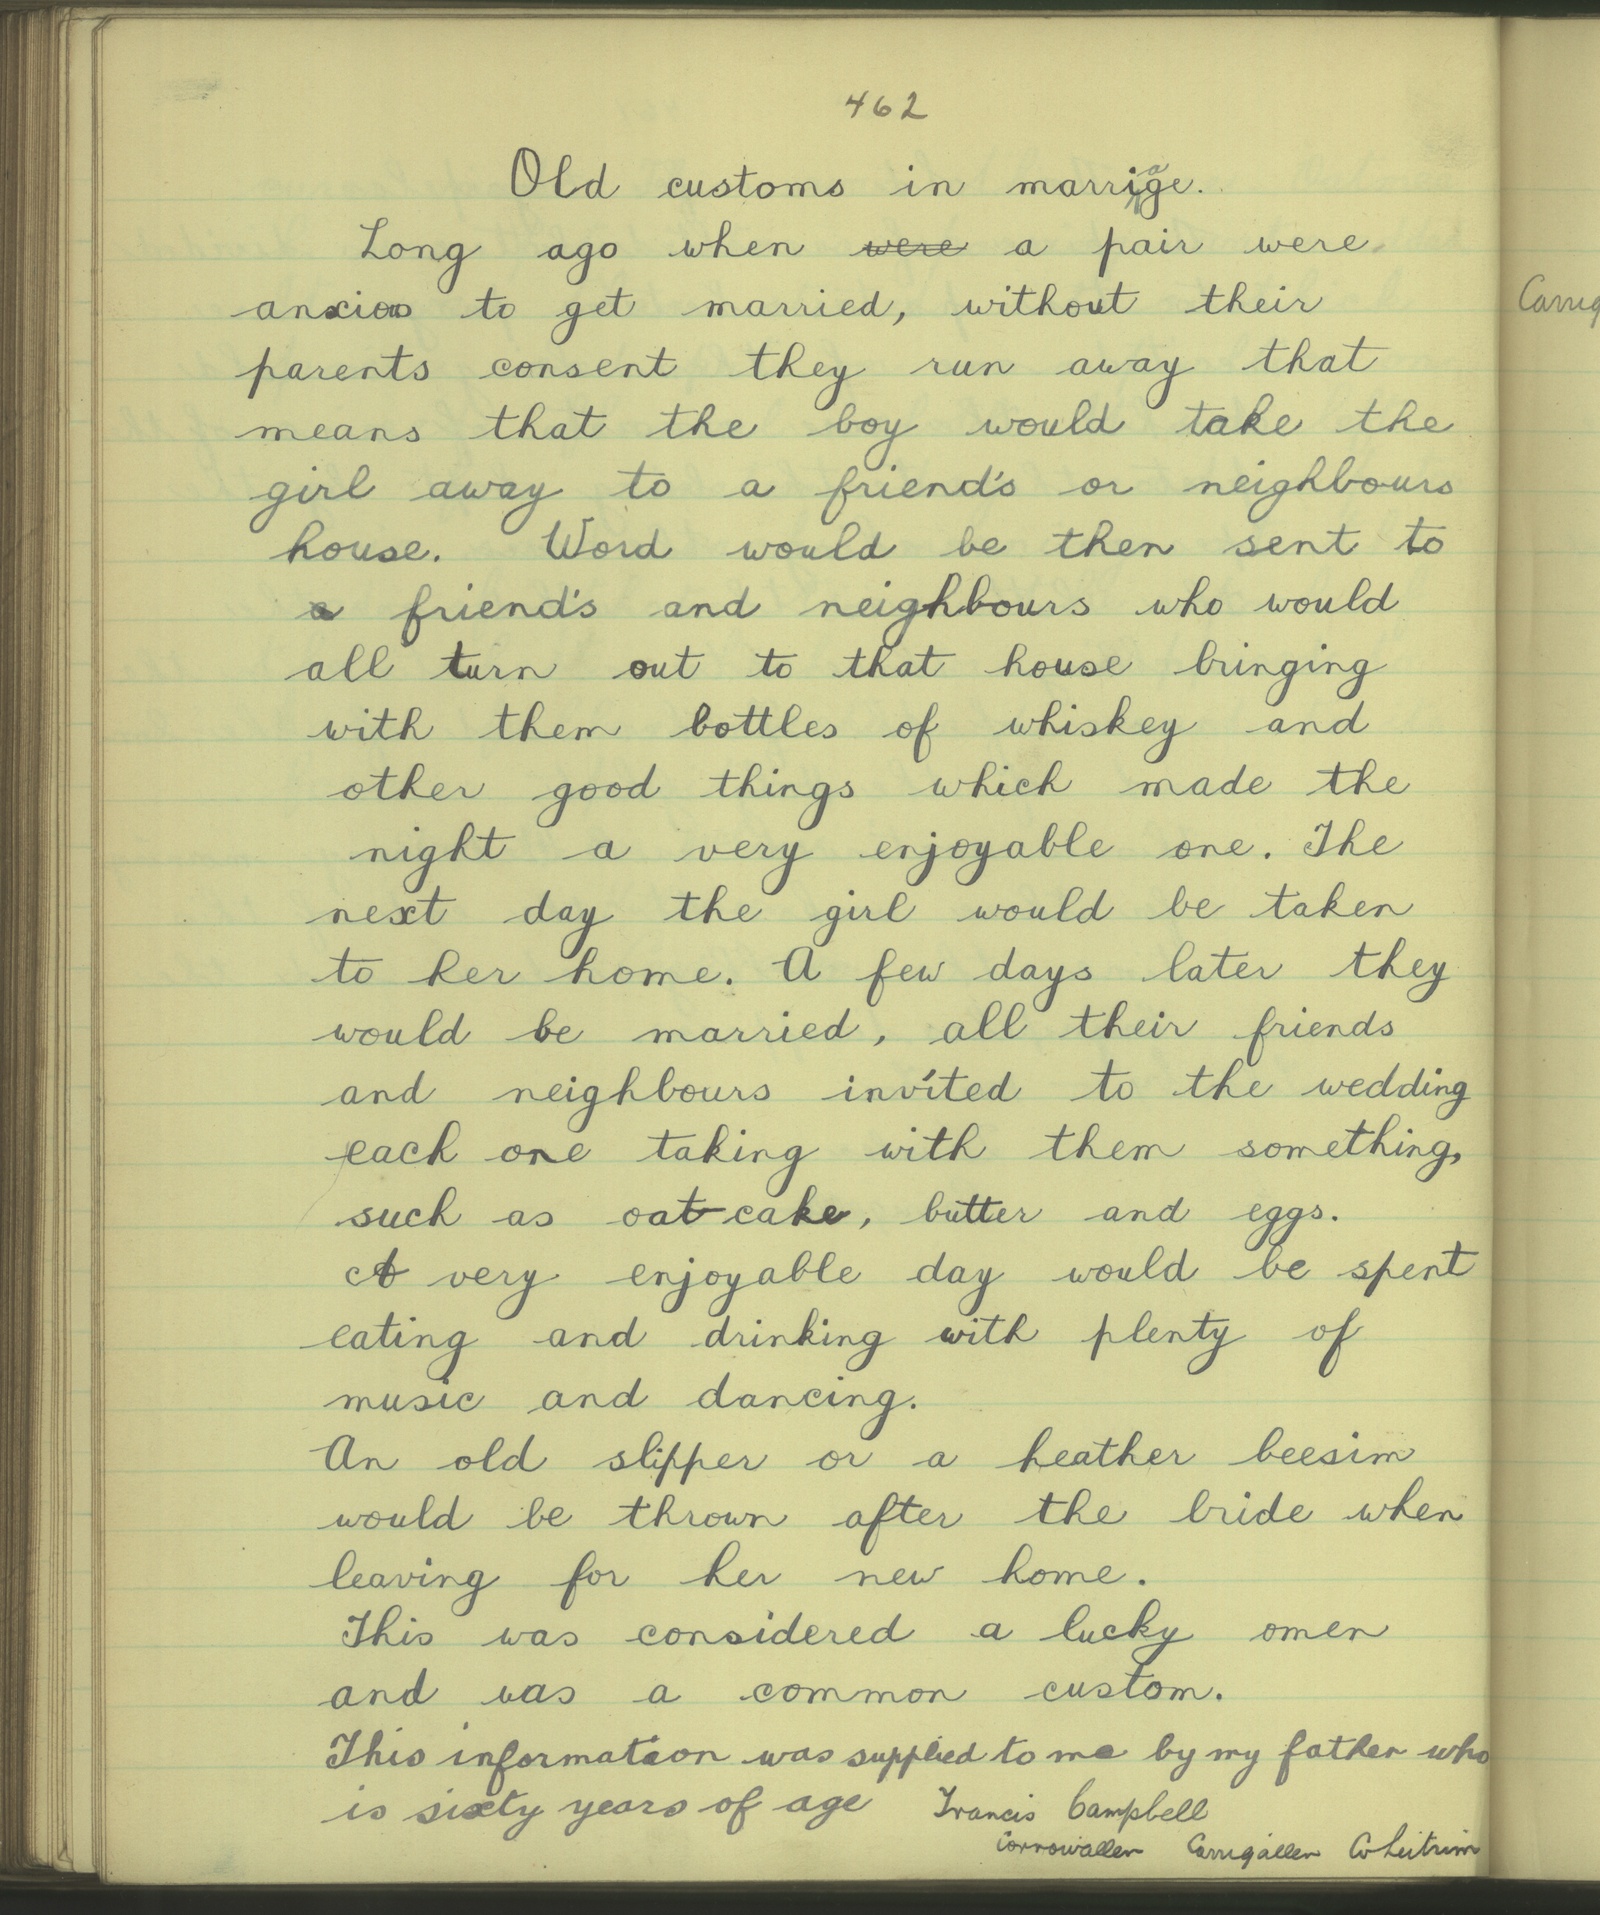 462
Old customs in marriage.
Long ago when were a pair were
anxious to get married, without their
parents consent they run away that
means that the boy would take the
girl away to a friend's or neighbours
house. Word would be then sent to
a friend's and neighbours who would
all turn out to that house bringing
with them bottles of whiskey and
other good things which made the
night a very enjoyable one. The
next day the girl would be taken
to her home. A few days later they
would be married, all their friends
and neighbours invited to the wedding
each one taking with them something,
such as oat-cake, butter and eggs.
A very enjoyable day would be spent
eating and drinking with plenty of
music and dancing.
An old slipper or a heather beesim
would be thrown after the bride when
leaving for her new home.
This was considered a lucky omen
and was a common custom.
This information was supplied to me by my father who
is sixty years of age Francis Campbell
Cornowallen Carrigallen Co Leitrim